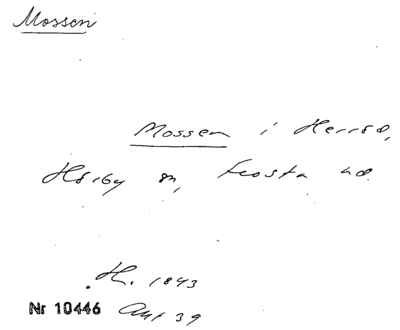 Mossen
Mossen i Herrsd,
Hörby sn, Frosta hd.
H. 1843
Nr 10446 Akt 39